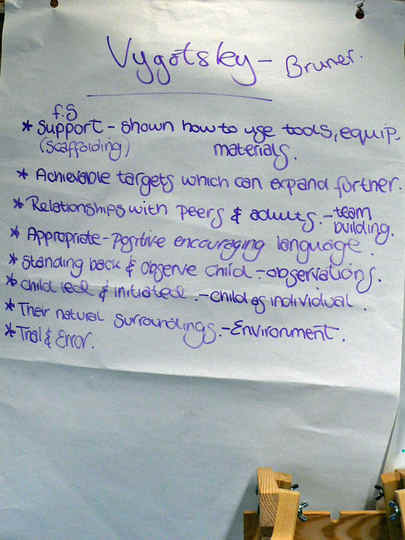 Vygotsky - Bruner.
f.S
* Support - shown how to use tools, equip.
(scaffolding) materials.
* Achievable targets which can expand further.
* Relationships with peers & adults. - team
building.
* Appropriate - positive encouraging language.
* Standing back & observe child - observations.
* Child led & initiated. - child as individual.
* Their natural surroundings. - Environment.
* Trial & Error.